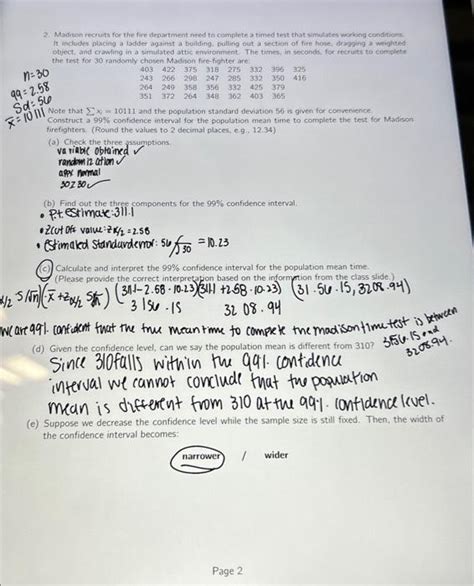 2. Madison recruits for the fire department need to complete a timed test that simulates working conditions.
It includes placing a ladder against a building, pulling out a section of fire hose, dragging a weighted
object, and crawling in a simulated attic environment. The times, in seconds, for recruits to complete
the test for 30 randomly chosen Madison fire-fighter are:
403 422 375 318 275 332 396 325
243 266 298 247 285 332 350 416
264 249 358 356 332 425 379
351 372 264 348 362 403 365
n=30
99=2.58
Sd=56
x̄=10111
Note that ∑xᵢ = 10111 and the population standard deviation 56 is given for convenience.
Construct a 99% confidence interval for the population mean time to complete the test for Madison
firefighters. (Round the values to 2 decimal places, e.g., 12.34)
(a) Check the three assumptions.
variable obtained ✓
randomization ✓
apx normal
30≥30 ✓
(b) Find out the three components for the 99% confidence interval.
• Pt estimate: 311.1
• Zcut offs value: z α/2 = 2.58
• Estimated standard error: 56/√30 = 10.23
(c) Calculate and interpret the 99% confidence interval for the population mean time.
(Please provide the correct interpretation based on the information from the class slide.)
α/2 S/√n)(x̄+zα/2 S/√n) (311.1-2.58·10.23)(311.1+2.58·10.23) (31.56.15, 3208.94)
3156.15 3208.94
We are 99% confident that the true mean time to complete the madison time test is between
3156.15 and
3208.94.
(d) Given the confidence level, can we say the population mean is different from 310?
Since 310 falls within the 99% confidence
interval we cannot conclude that the population
mean is different from 310 at the 99% confidence level.
(e) Suppose we decrease the confidence level while the sample size is still fixed. Then, the width of
the confidence interval becomes:
narrower / wider
Page 2